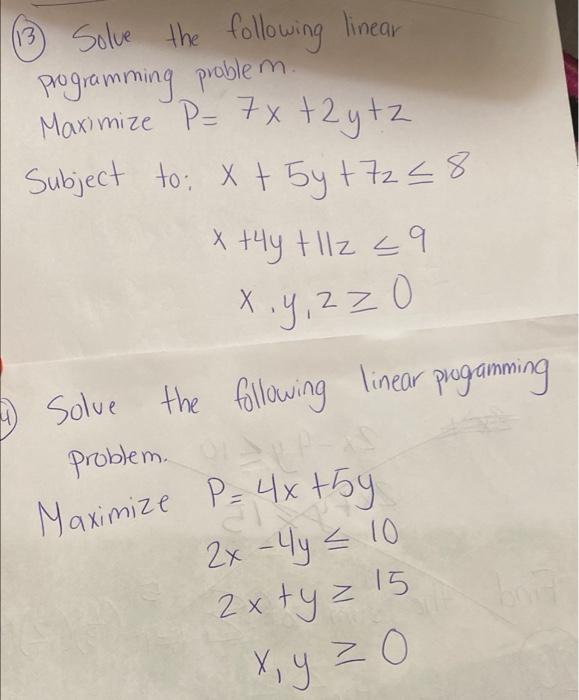 13 Solve the following linear
programming problem.
Maximize P= 7x +2y+z
Subject to: x + 5y +7z ≤ 8
x +4y +11z ≤ 9
x,y,z ≥ 0
4) Solve the following linear progamming
problem.
Maximize P= 4x +5y
2x -4y ≤ 10
2x +y ≥ 15
x, y ≥ 0